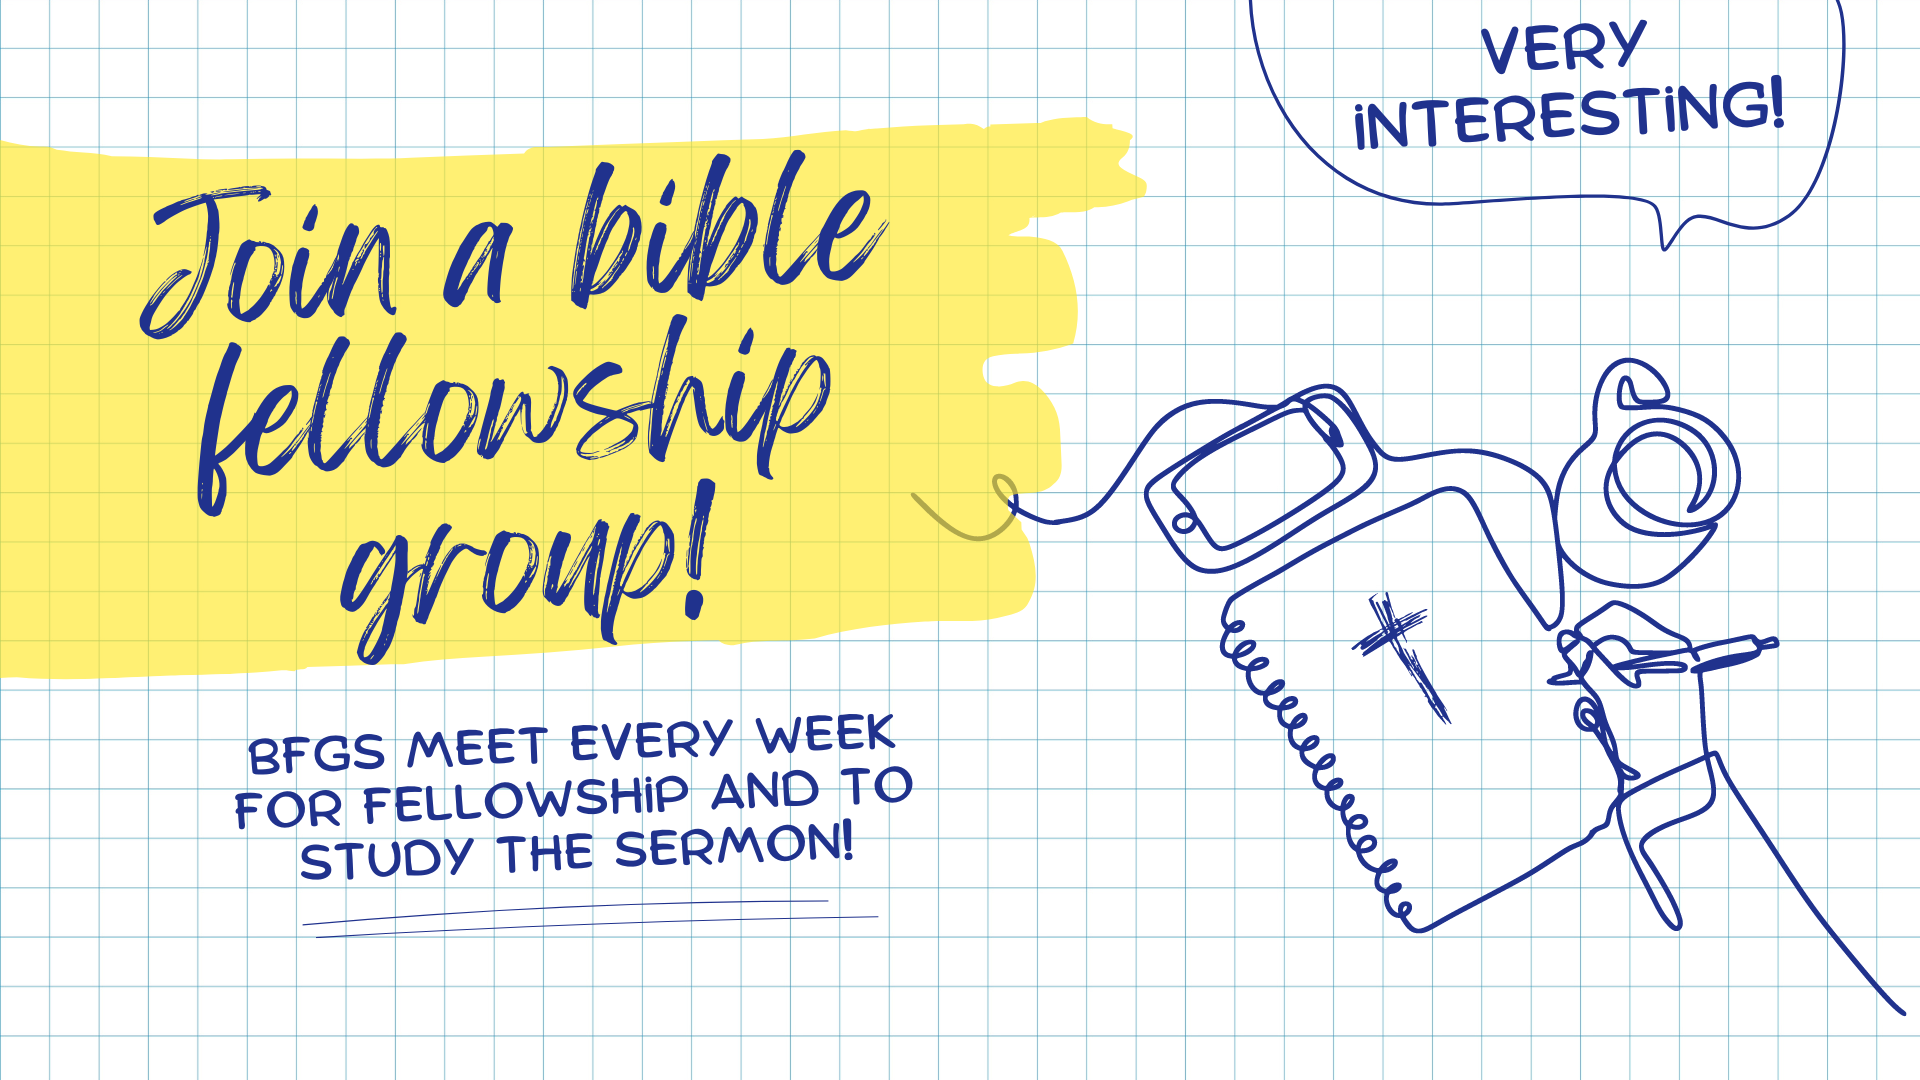 Join a bible
fellowship
group!
BFGS MEET EVERY WEEK
FOR FELLOWSHIP AND TO
STUDY THE SERMON!
VERY
INTERESTING!